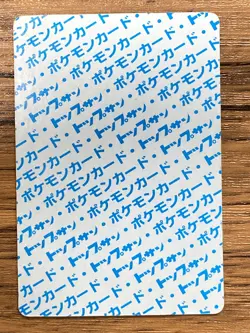 モンカード・
ポケモンカード・トップサン
トップサン・ポケモンカード・
ンカード・トップサン・ポケモン
ポケモンカード・トップサン・
トップサン・ポケモンカード・
カード・トップサン・ポケモン
ポケモンカード・トップサン・
トップサン・ポケモンカード・
カード・トップサン・ポケモン
ポケモンカード・トップサン・
トップサン・ポケモンカード・
ポケモンカード・
トップサン